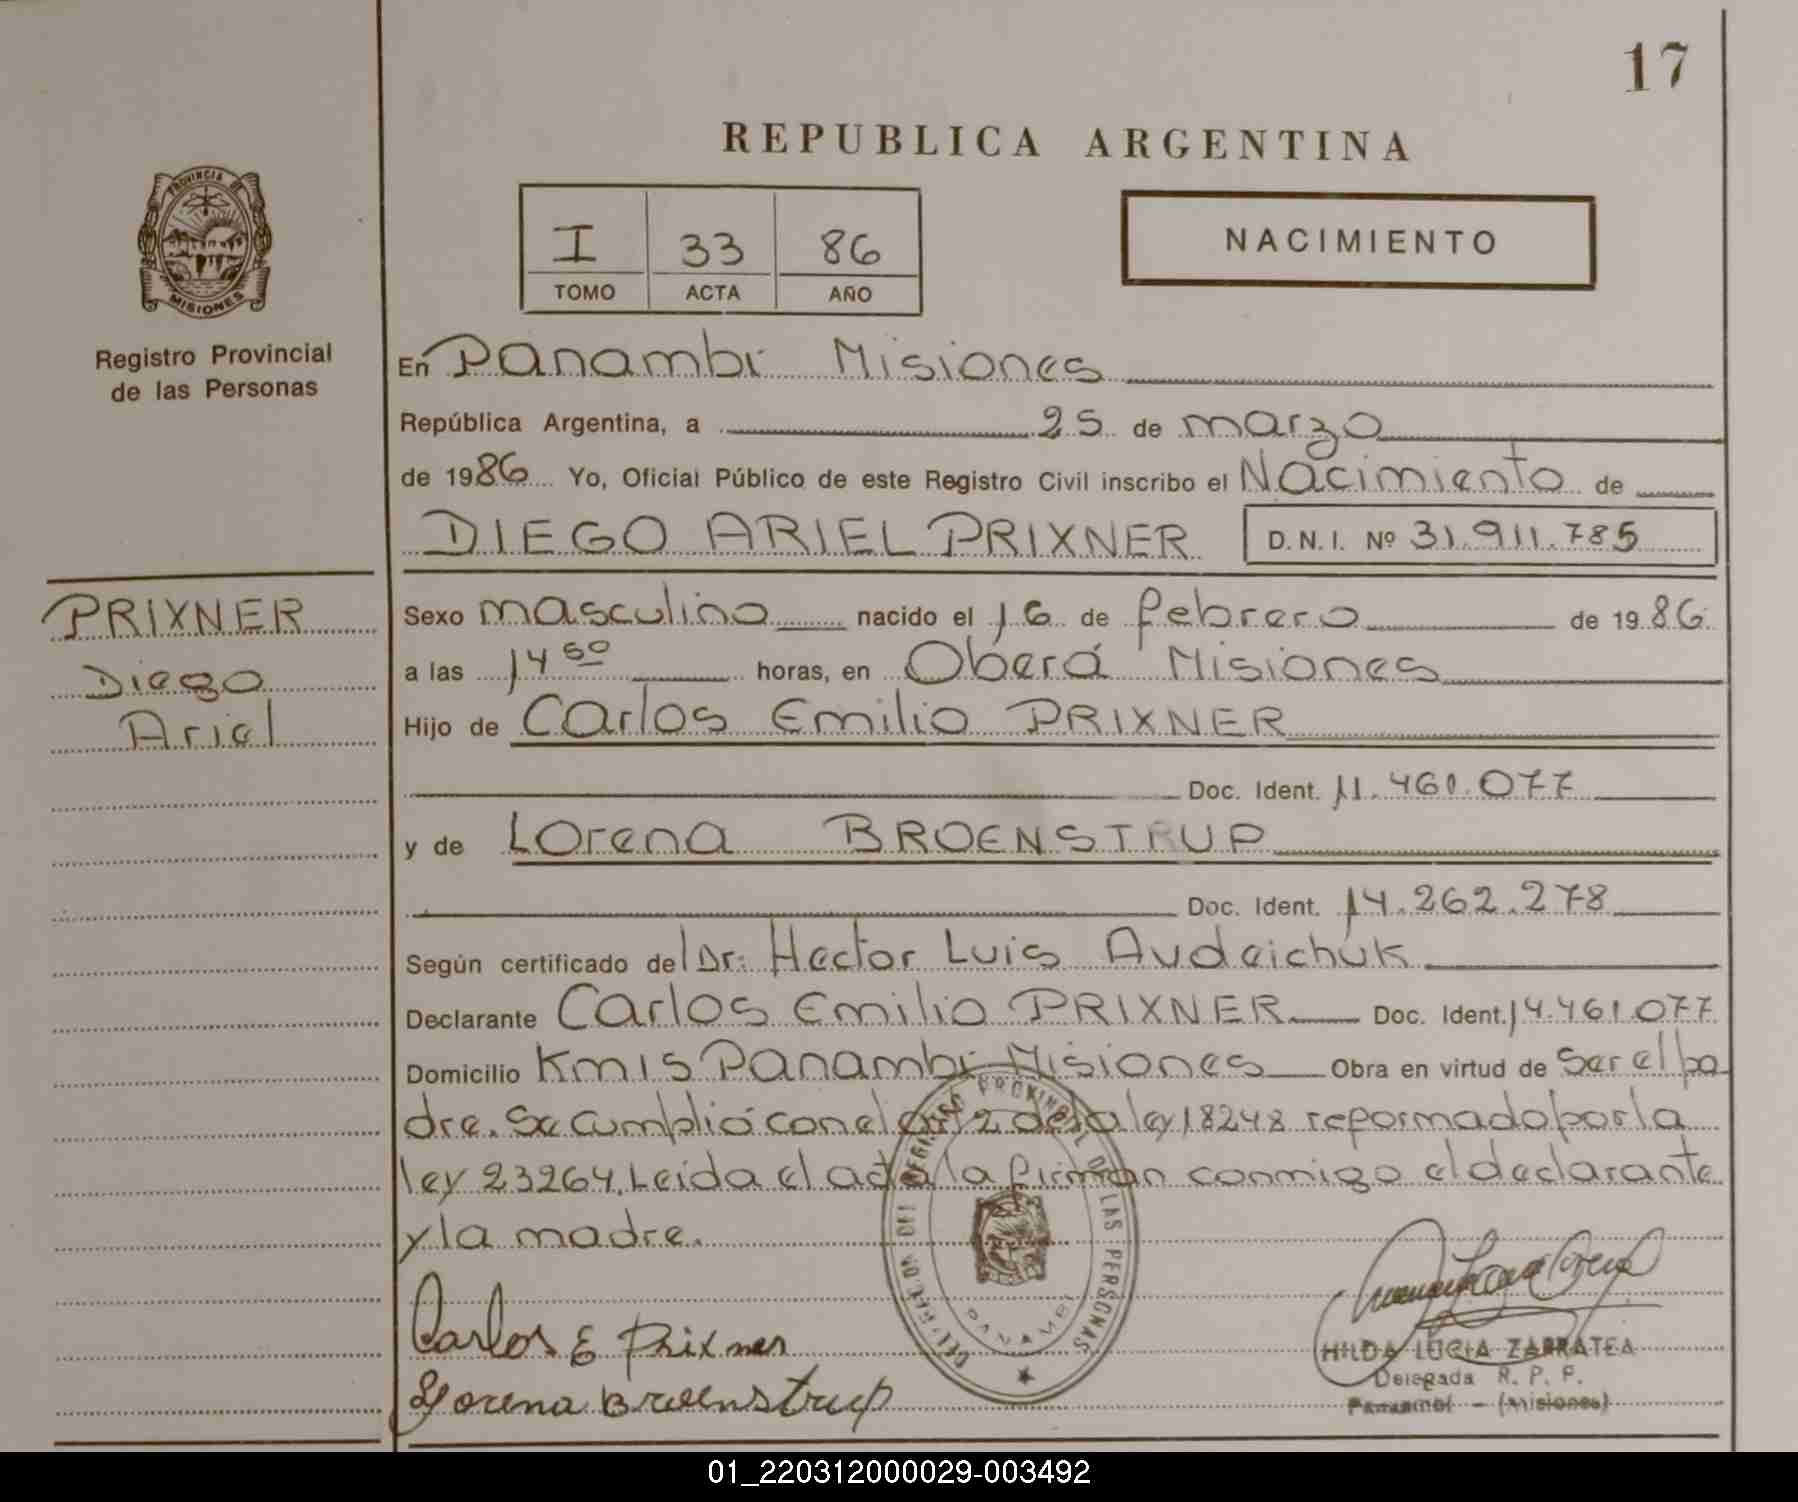 17
REPUBLICA ARGENTINA
PROVINCIA DE
MISIONES
Registro Provincial
de las Personas
I 33 86
TOMO ACTA AÑO
NACIMIENTO
En Panambi Misiones
República Argentina, a 25 de marzo
de 1986 Yo, Oficial Público de este Registro Civil inscribo el Nacimiento de
DIEGO ARIEL PRIXNER D.N.I. Nº 31.911.785
PRIXNER
Diego
Ariel
Sexo masculino nacido el 16 de febrero de 1986.
a las 14 50 horas, en Oberá Misiones
Hijo de Carlos Emilio PRIXNER
Doc. Ident. 11.461.077
y de Lorena BROENSTRUP
Doc. Ident. 14.262.278
Según certificado del Dr: Hector Luis Audeichuk
Declarante Carlos Emilio PRIXNER Doc. Ident. 14.461.077
Domicilio Km 15 Panambi Misiones Obra en virtud de Ser el pa
dre. Se cumplió con el art 2 de la ley 18248 reformado por la
ley 23264. Leida el acta la firman conmigo el declarante
y la madre.
Carlos E Prixner
Lorena Broenstrup
DEL REGISTRO PROVINCIAL DE LAS PERSONAS
PANAMBI
HILDA LUCIA ZARRATEA
Delegada R. P. P.
Panambi - (Misiones)
01_220312000029-003492